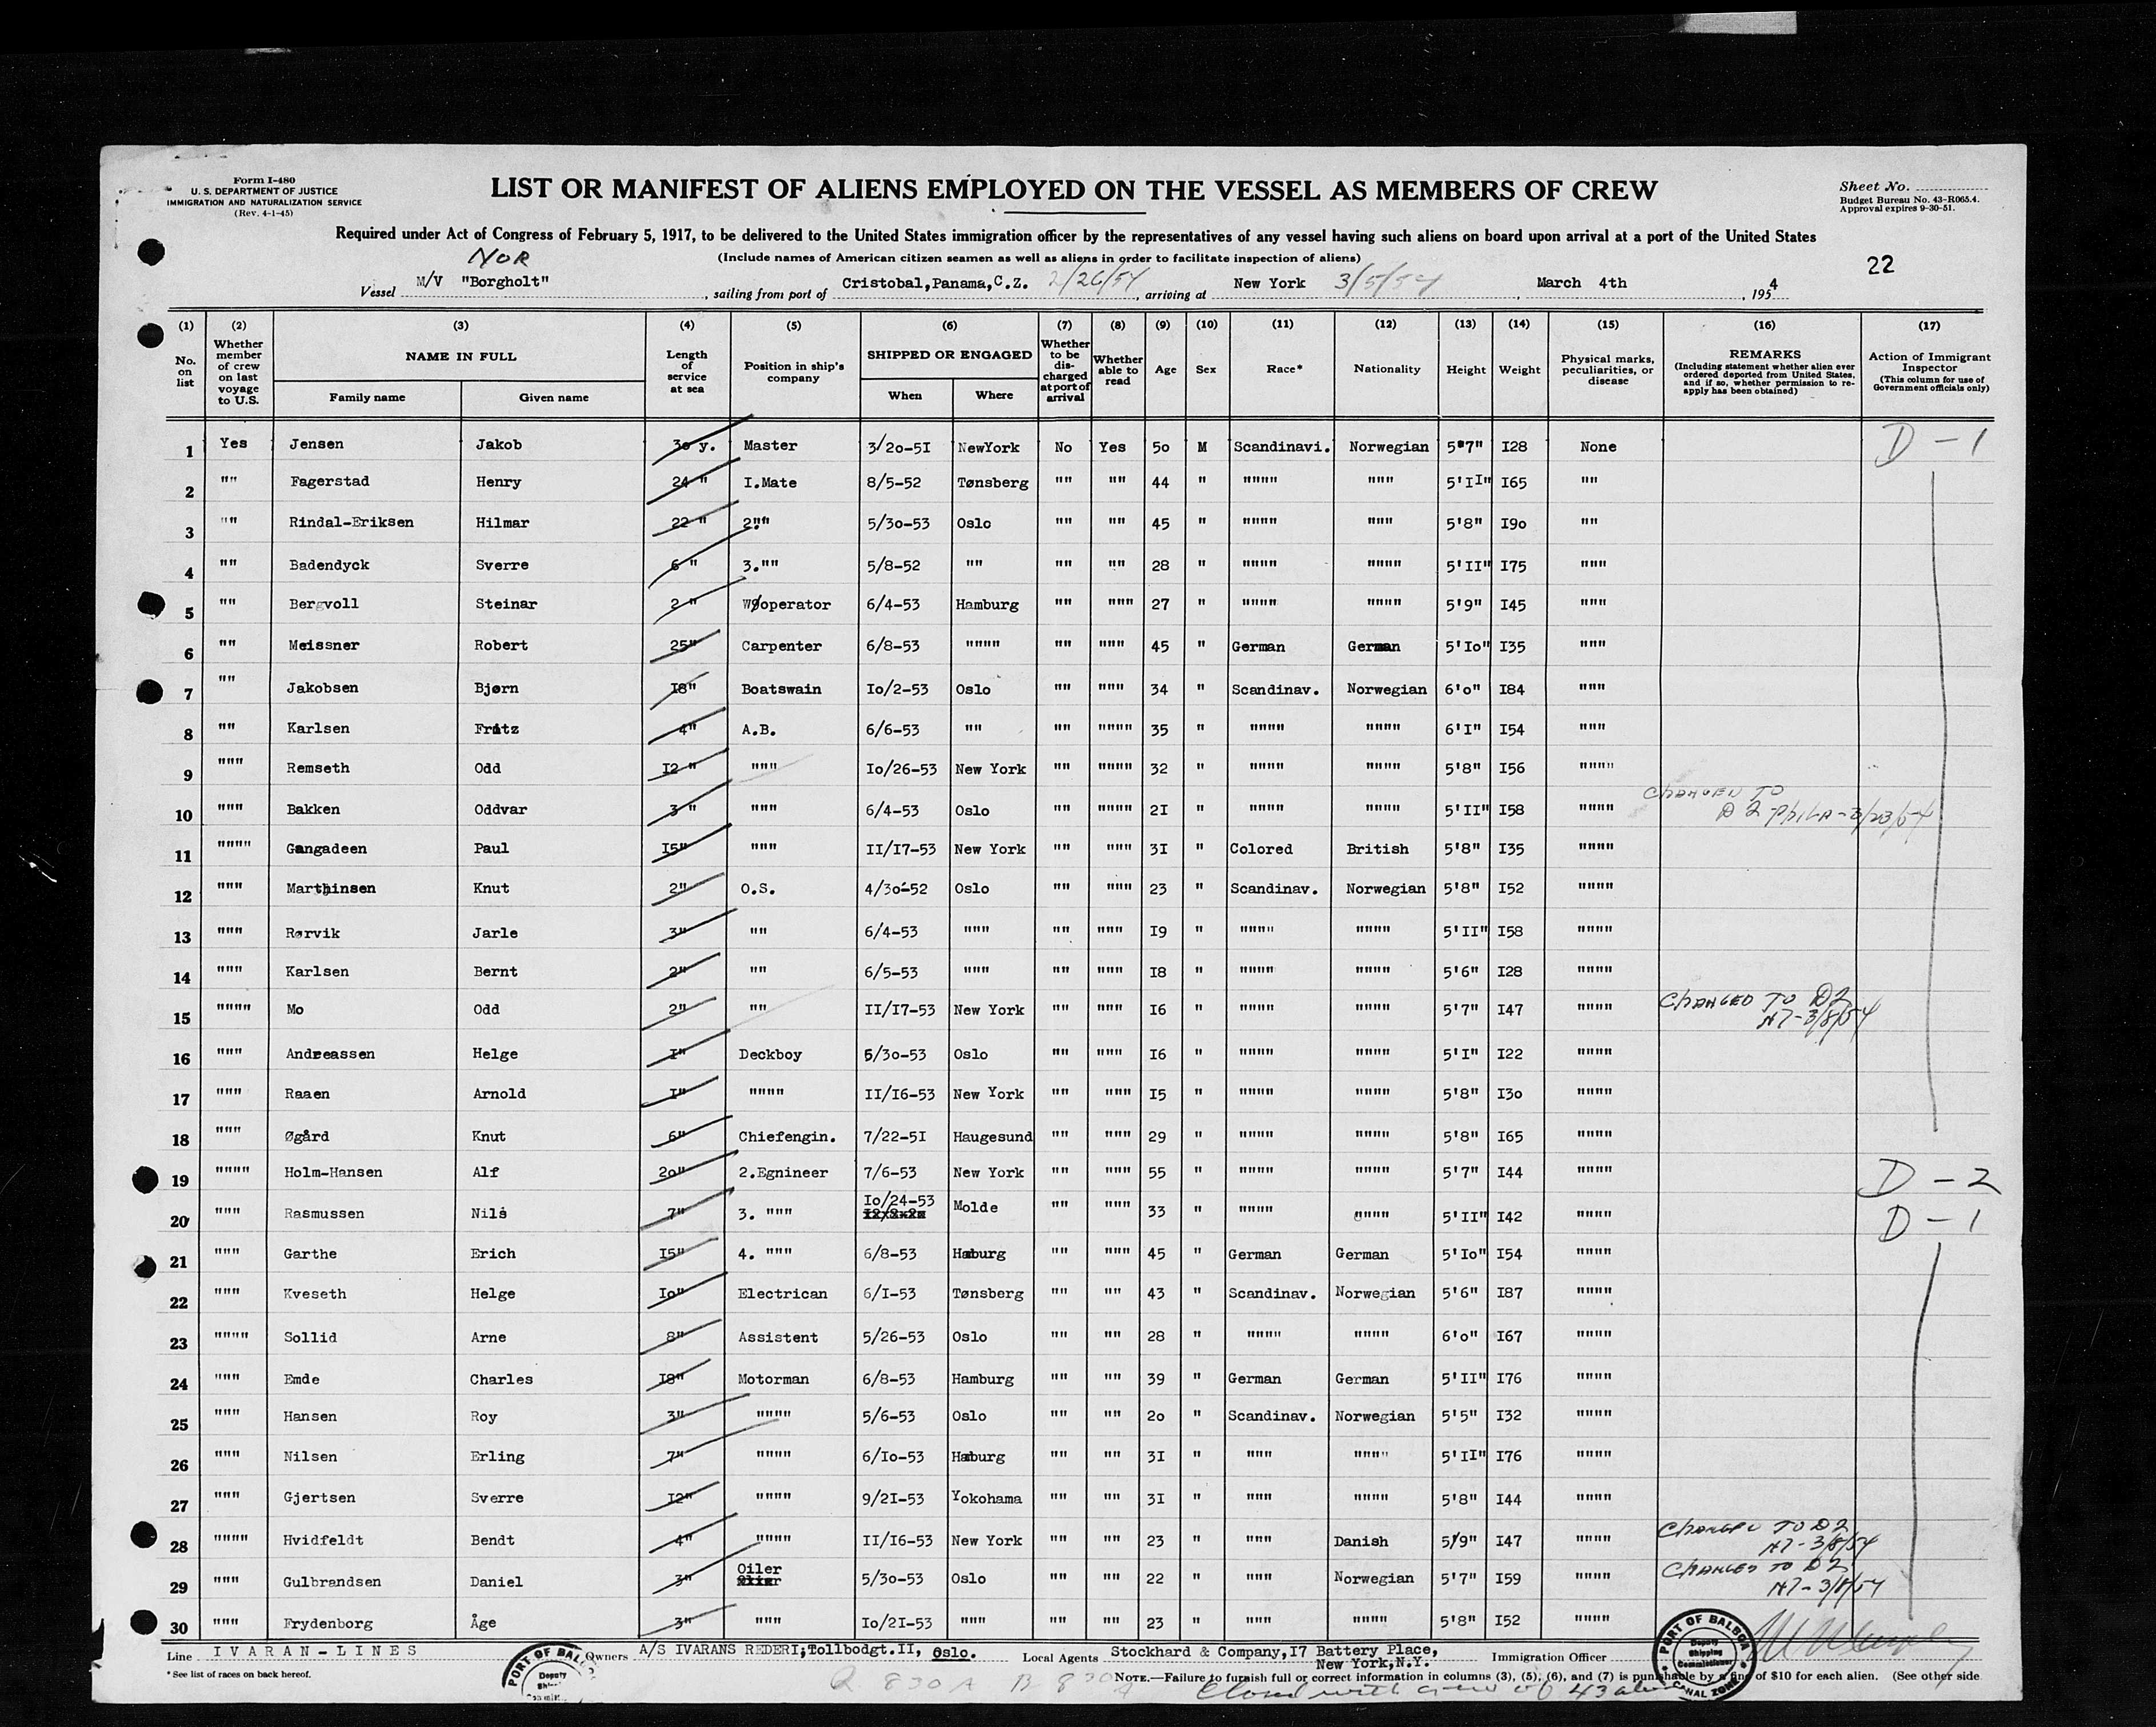 Form I-480
U. S. DEPARTMENT OF JUSTICE
IMMIGRATION AND NATURALIZATION SERVICE
(Rev. 4-1-45)
LIST OR MANIFEST OF ALIENS EMPLOYED ON THE VESSEL AS MEMBERS OF CREW
Sheet No.
Budget Bureau No. 43-R065.4.
Approval expires 9-30-51.
Required under Act of Congress of February 5, 1917, to be delivered to the United States immigration officer by the representatives of any vessel having such aliens on board upon arrival at a port of the United States
(Include names of American citizen seamen as well as aliens in order to facilitate inspection of aliens)
NOR
22
Vessel M/V "Borgholt" , sailing from port of Cristobal,Panama,C.Z. 2/26/54 , arriving at New York 3/5/54 , March 4th , 1954
(1) No. on list (2) Whether member of crew on last voyage to U.S. (3) NAME IN FULL Family name Given name (4) Length of service at sea (5) Position in ship's company (6) SHIPPED OR ENGAGED When Where (7) Whether to be discharged at port of arrival (8) Whether able to read (9) Age (10) Sex (11) Race* (12) Nationality (13) Height (14) Weight (15) Physical marks, peculiarities, or disease (16) REMARKS (Including statement whether alien ever ordered deported from United States, and if so, whether permission to reapply has been obtained) (17) Action of Immigrant Inspector (This column for use of Government officials only)
1 Yes Jensen Jakob 3o y. Master 3/2o-5I NewYork No Yes 5o M Scandinavi. Norwegian 5"7" I28 None D-1
2 "" Fagerstad Henry 24 " I.Mate 8/5-52 Tønsberg "" "" 44 " """" """ 5'II" I65 ""
3 "" Rindal-Eriksen Hilmar 22 " 2"" 5/3o-53 Oslo "" "" 45 " """" """ 5'8" I9o ""
4 "" Badendyck Sverre 6 " 3."" 5/8-52 "" "" "" 28 " """" """" 5'II" I75 """
5 "" Bergvoll Steinar 2 " W/operator 6/4-53 Hamburg "" """ 27 " """" """" 5'9" I45 """
6 "" Meissner Robert 25" Carpenter 6/8-53 """" "" """ 45 " German German 5'Io" I35 """
7 "" Jakobsen Bjørn I8" Boatswain Io/2-53 Oslo "" """ 34 " Scandinav. Norwegian 6'o" I84 """
8 "" Karlsen Fritz 4" A.B. 6/6-53 "" "" """" 35 " """" """" 6'I" I54 """
9 """ Remseth Odd I2 " """ Io/26-53 New York "" """" 32 " """" """" 5'8" I56 """"
10 """ Bakken Oddvar 3 " """ 6/4-53 Oslo "" """" 2I " """" """" 5'II" I58 """" CHANGED TO D2 PHILA-3/23/54
11 """" Gangadeen Paul I5" """ II/I7-53 New York "" """ 3I " Colored British 5'8" I35 """"
12 """ Marthinsen Knut 2" O.S. 4/3o-52 Oslo "" """ 23 " Scandinav. Norwegian 5'8" I52 """"
13 """ Rørvik Jarle 3" "" 6/4-53 """ "" """ I9 " """" """" 5'II" I58 """"
14 """ Karlsen Bernt 2" "" 6/5-53 """ "" """ I8 " """" """" 5'6" I28 """"
15 """" Mo Odd 2" "" II/I7-53 New York "" """ I6 " """" """" 5'7" I47 """" CHANGED TO D2 N7-3/8/54
16 """ Andreassen Helge I" Deckboy 5/3o-53 Oslo "" """ I6 " """" """" 5'I" I22 """"
17 """ Raaen Arnold I" """" II/I6-53 New York "" """ I5 " """" """" 5'8" I3o """"
18 """ Øgård Knut 6" Chiefengin. 7/22-5I Haugesund "" """ 29 " """" """" 5'8" I65 """"
19 """" Holm-Hansen Alf 2o" 2.Egnineer 7/6-53 New York "" """ 55 " """" """" 5'7" I44 """" D-2
20 """ Rasmussen Nils 7" 3. """ Io/24-53 Molde "" """ 33 " """" """" 5'II" I42 """" D-1
21 """ Garthe Erich I5" 4. """ 6/8-53 Hamburg "" """ 45 " German German 5'Io" I54 """"
22 """ Kveseth Helge Io" Electrican 6/I-53 Tønsberg "" "" 43 " Scandinav. Norwegian 5'6" I87 """"
23 """" Sollid Arne 8" Assistent 5/26-53 Oslo "" "" 28 " """" """" 6'o" I67 """"
24 """ Emde Charles I8" Motorman 6/8-53 Hamburg "" "" 39 " German German 5'II" I76 """"
25 """ Hansen Roy 3" """" 5/6-53 Oslo "" "" 2o " Scandinav. Norwegian 5'5" I32 """"
26 """ Nilsen Erling 7" """" 6/Io-53 Hamburg "" "" 3I " """ """" 5'II" I76 """"
27 """ Gjertsen Sverre I2" """" 9/2I-53 Yokohama "" "" 3I " """ """" 5'8" I44 """"
28 """" Hvidfeldt Bendt 4" """" II/I6-53 New York "" "" 23 " """ Danish 5/9" I47 """" CHANGED TO D2 N7-3/8/54
29 """ Gulbrandsen Daniel 3" Oiler 5/3o-53 Oslo "" "" 22 " """ Norwegian 5'7" I59 """" CHANGED TO D2 N7-3/8/54
30 """ Frydenborg Åge 3" """ Io/2I-53 """ "" "" 23 " """ """" 5'8" I52 """"
Line IVARAN-LINES Owners A/S IVARANS REDERI;Tollbodgt.II, Oslo. Local Agents Stockhard & Company,I7 Battery Place, New York,N.Y. Immigration Officer
*See list of races on back hereof.
NOTE.—Failure to furnish full or correct information in columns (3), (5), (6), and (7) is punishable by a fine of $10 for each alien. (See other side
PORT OF BALBOA
Deputy
Shipping
Commissioner
CANAL ZONE
PORT OF BALB
Deputy
830A B 830A
with crew of 43